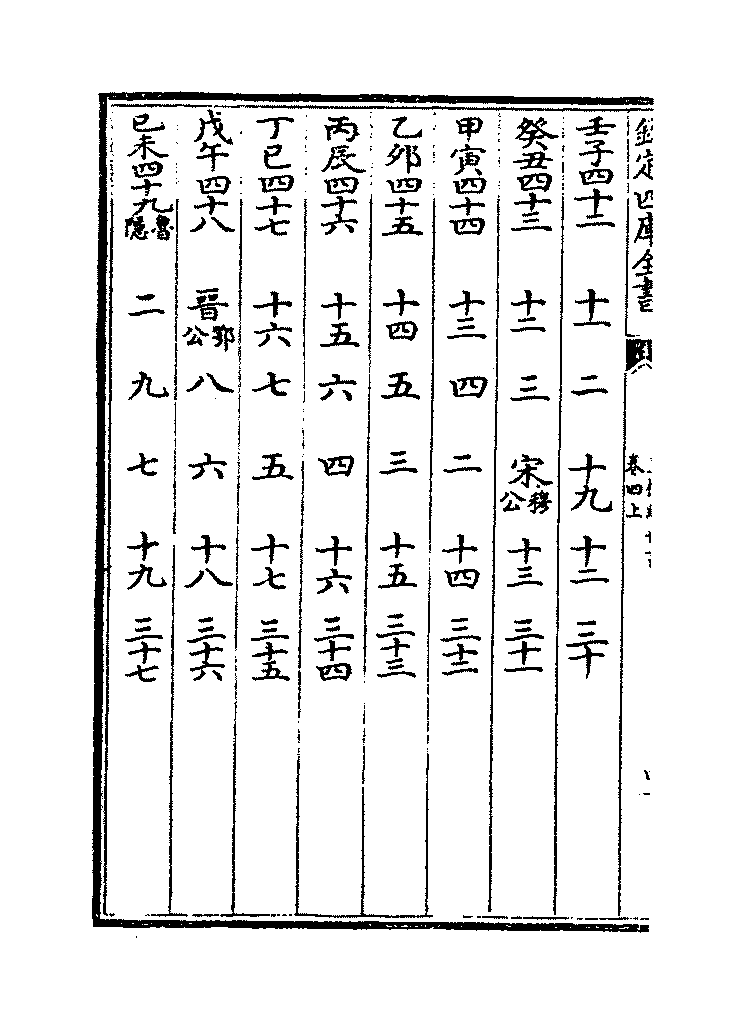 欽定四庫全書
卷四上
壬子四十二 十一 二 十九 十二 三十
癸丑四十三 十二 三 宋穆公 十三 三十一
甲寅四十四 十三 四 二 十四 三十二
乙夘四十五 十四 五 三 十五 三十三
丙辰四十六 十五 六 四 十六 三十四
丁巳四十七 十六 七 五 十七 三十五
戊午四十八 晉鄂公 八 六 十八 三十六
已未四十九魯隱 二 九 七 十九 三十七